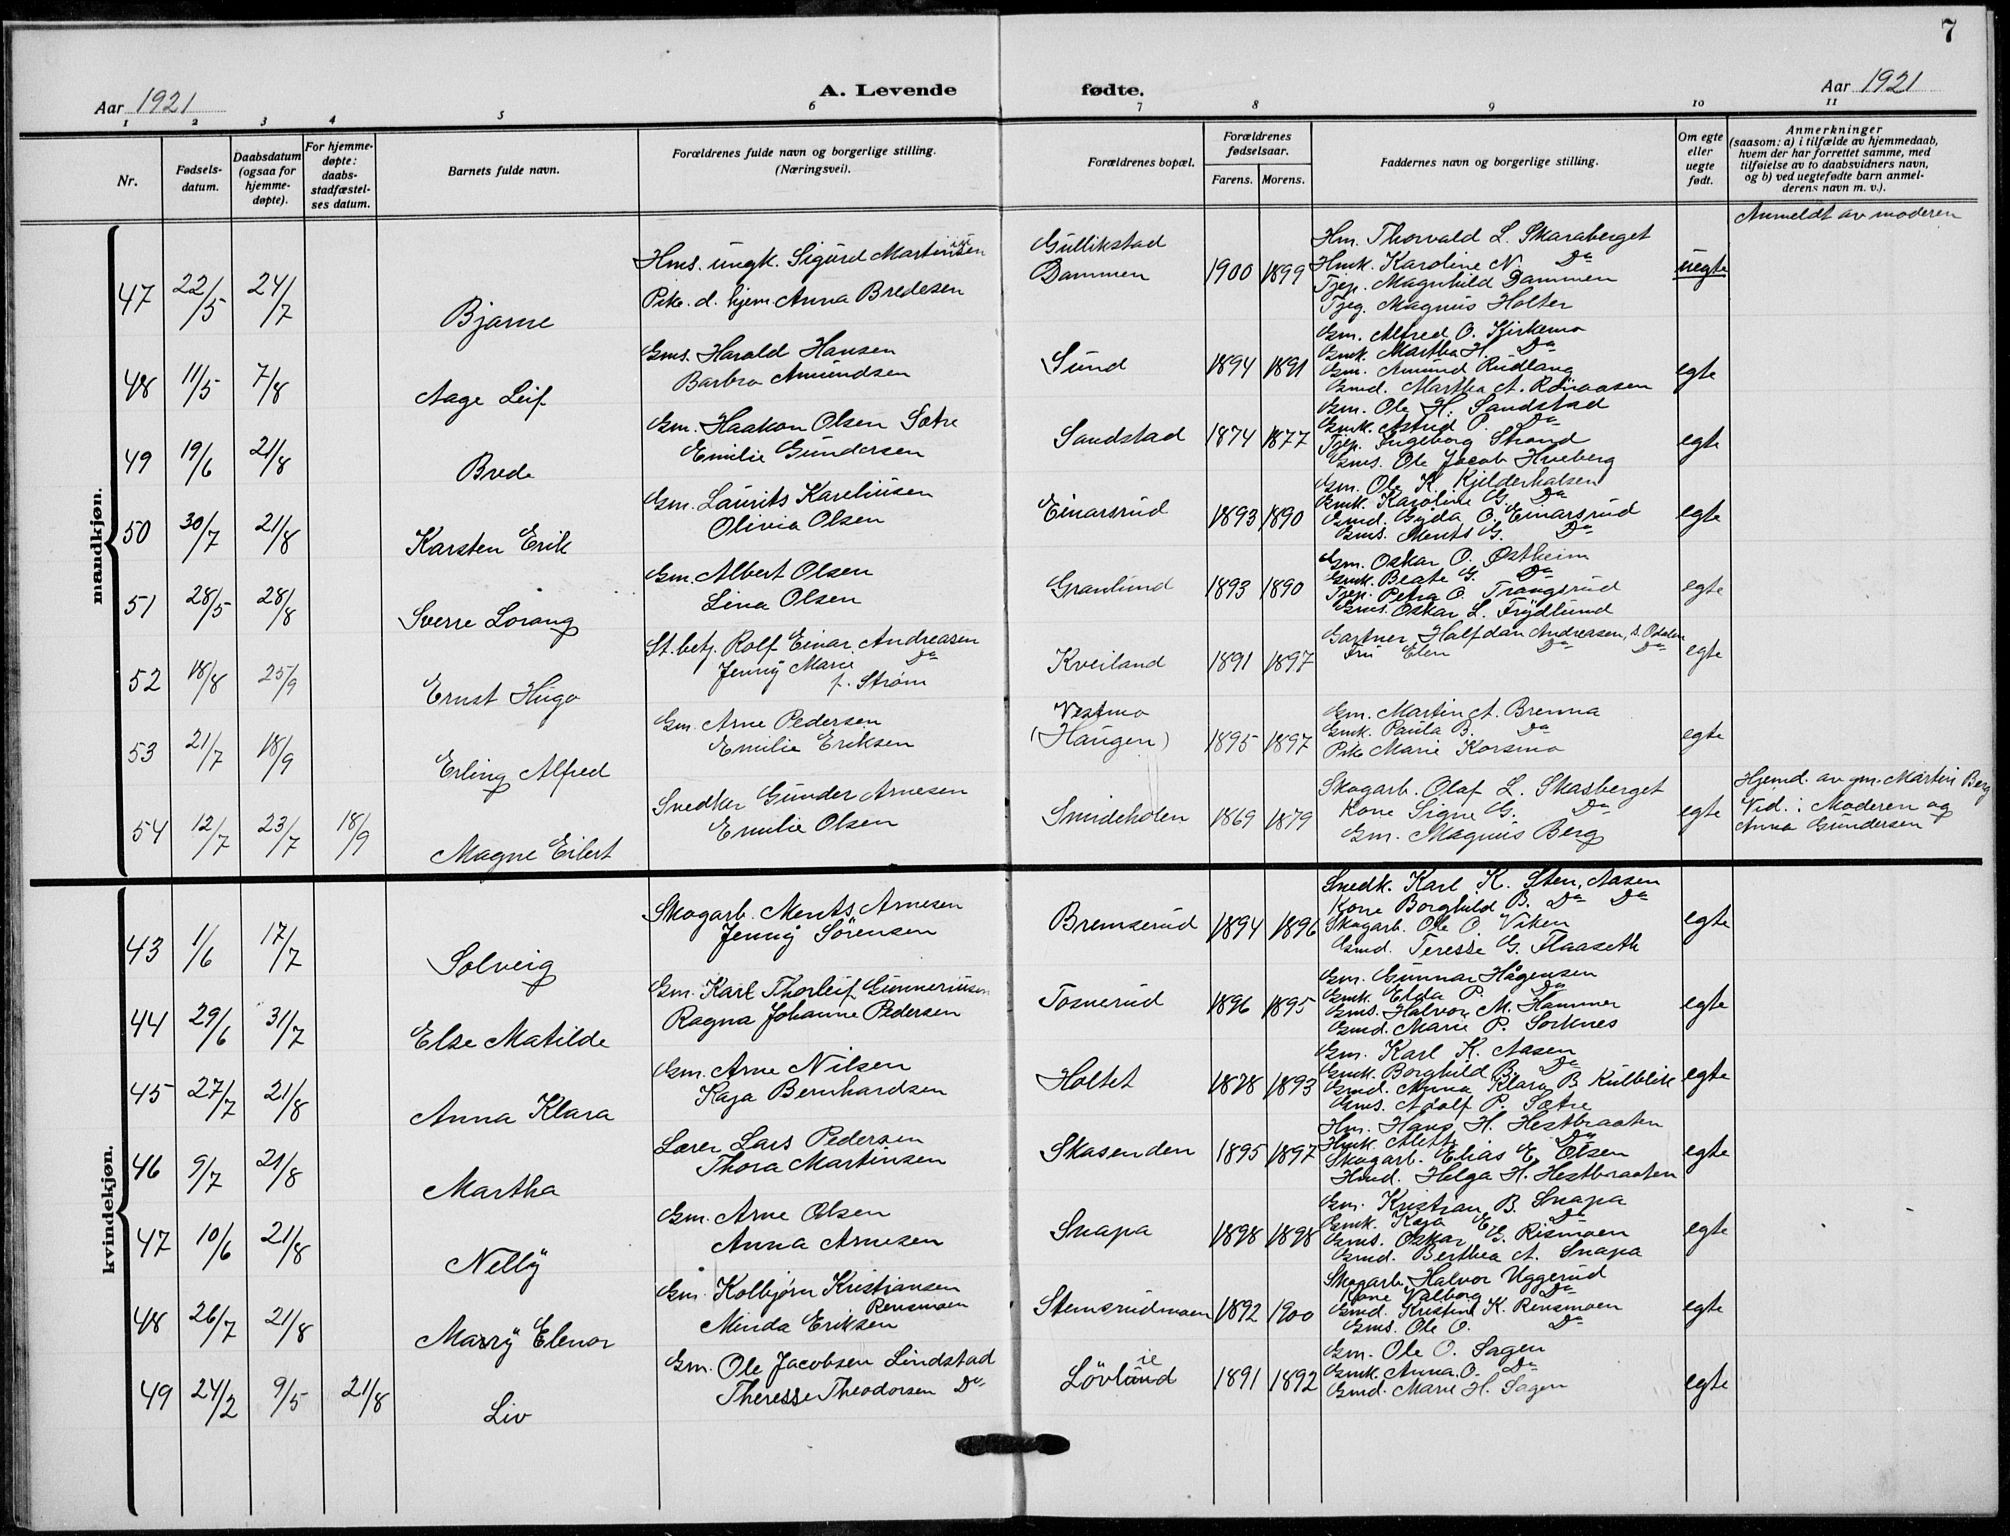 7
Aar 1921
A. Levende fødte.
Aar 1921
1 2 3 4 5 6 7 8 9 10 11
Nr.
Fødsels-
datum.
Daabsdatum
(ogsaa for
hjemme-
døpte).
For hjemme-
døpte:
daabs-
stadfæstel-
ses datum.
Barnets fulde navn.
Forældrenes fulde navn og borgerlige stilling.
(Næringsvei).
Forældrenes bopæl.
Forældrenes
fødselsaar.
Farens. Morens.
Faddernes navn og borgerlige stilling.
Om egte
eller
uegte
født.
Anmerkninger
(saasom: a) i tilfælde av hjemmedaab,
hvem der har forrettet samme, med
tilføielse av to daabsvidners navn,
og b) ved uegtefødte barn anmel-
derens navn m. v.).
mandkjøn.
47 22/5 24/7 Bjarne
Hms. ungk. Sigurd Martinsen
Pike. d. hjem. Anna Bredesen
Gullikstad
Dammen
1900 1899
Hm. Thorvald L. Skaraberget
Hmk. Karoline N. Do
Tjep. Magnhild Dammen
Tjeg. Magnus Holter
uegte
Anmeldt av moderen
48 11/5 7/8 Aage Leif
Gms. Harald Hansen
Barbro Amundsen
Sund
1894 1891
Gm. Alfred O. Kirkemo
Gmk. Martha H. Do
Gm. Amund Rudlang
Gmd. Martha A. Rönaasen
egte
49 19/6 21/8 Brede
Gm. Haakon Olsen Sætre
Emilie Gundersen
Sandstad
1874 1877
Gm. Ole H. Sandstad
Gmk. Astrid P. Do
Tjep. Ingeborg Strand
Gms. Ole Jacob Hveberg
egte
50 30/7 21/8 Karsten Erik
Gm. Laurits Kareliusen
Olivia Olsen
Einarsrud
1893 1890
Gm. Ole K. Kjilderhalsen
Gmk. Karoline G. Do
Gmd. Gyda O. Einarsrud
Gms. Ments G. Do
egte
51 28/5 28/8 Sverre Lorang
Gm. Albert Olsen
Lina Olsen
Granlund
1893 1890
Gm. Oskar O. Østheim
Gmk. Beate G. Do
Tjep. Petra O. Trangsrud
Gms. Oskar L. Frydlund
egte
52 18/8 25/9 Ernst Hugo
St. betj. Rolf Einar Andreasen
Jenny Marie Do
f. Strøm
Kveiland
1891 1897
Gartner Halfdan Andreasen, s. Odalen
Fru Elen Do Do
egte
53 21/7 18/9 Erling Alfred
Gm. Arne Pedersen
Emilie Eriksen
Vestmo
(Haugen)
1895 1897
Gm. Martin A. Brenna
Gmk. Paula B. Do
Pike Marie Korsmo
egte
54 12/7 23/7 18/9 Magne Eilert
Snedker Gunder Arnesen
Emilie Olsen
Smideholen
1869 1879
Skogarb. Olaf L. Skasberget
Kone Signe G. Do
Gm. Magnus Berg
egte
Hjemd. av gm. Martin Berg
Vid.: Moderen og
Anna Gundersen
kvindekjøn.
43 1/6 17/7 Solveig
Skogarb. Ments Arnesen
Jenny Sörensen
Bremserud
1894 1896
Snedk. Karl K. Sten, Aasen
Kone Borghild B. Do Do
Skogarb. Ole O. Viken
Gmd. Teresse G. Flaaseth
egte
44 29/6 31/7 Else Matilde
Gm. Karl Thorleif Gunneriusen
Ragna Johanne Pedersen
Tosnerud
1896 1895
Gm. Gunnar Hågensen
Gmk. Elda P. Do
Gms. Halvor M. Hammer
Gmd. Marie P. Sorknes
egte
45 27/7 21/8 Anna Klara
Gm. Arne Nilsen
Kaja Bernhardsen
Holtet
1878 1893
Gm. Karl K. Aasen
Gmk. Borghild B. Do
Gmd. Anna Klara B. Kulblik
Gms. Adolf P. Sætre
egte
46 9/7 21/8 Martha
Lærer Lars Pedersen
Thora Martinsen
Skasenden
1895 1897
Hm. Hans H. Hestbraaten
Hmk. Alette Do
Skogarb. Elias E. Olsen
Hmd. Helga H. Hestbraaten
egte
47 10/6 21/8 Nelly
Gm. Arne Olsen
Anna Arnesen
Snapa
1898 1898
Gm. Kristian B. Snapa
Gmk. Kaja E. Do
Gms. Oskar G. Rismoen
Gmd. Berthea A. Snapa
egte
48 26/7 21/8 Marry Elenor
Gm. Kolbjørn Kristiansen
Rensmoen
Minda Eriksen
Stemsrudmoen
1892 1900
Skogarb. Halvor Uggerud
Kone Valborg Do
Gmd. Kristine K. Rensmoen
Gms. Ole O. Do
egte
49 24/2 9/5 21/8 Liv
Gm. Ole Jacobsen Lindstad
Theresse Theodorsen Do
Lövlund
1891 1892
Gm. Ole O. Sagen
Gmk. Anna O. Do
Gmd. Marie H. Sagen
egte